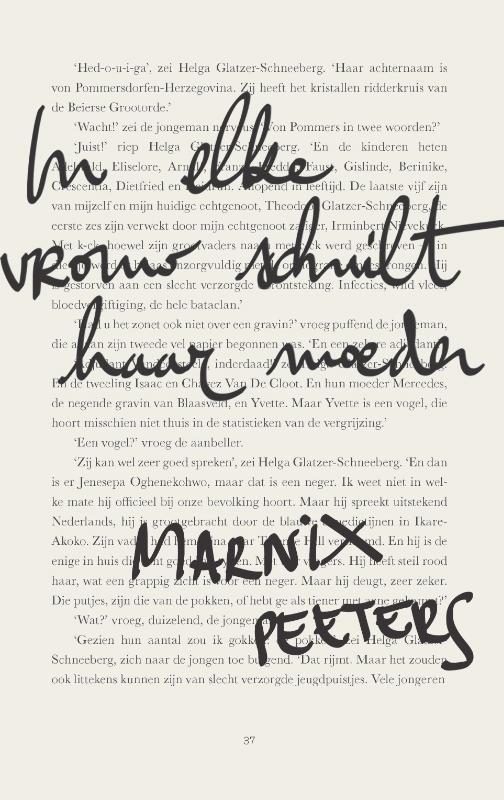 In elke
vrouw schuilt
haar moeder
MARNIX
PEETERS
'Hed-o-u-i-ga', zei Helga Glatzer-Schneeberg. 'Haar achternaam is
von Pommersdorfen-Herzegovina. Zij heeft het kristallen ridderkruis van
de Beierse Grootorde.'
'Wacht!' zei de jongeman nerveus. 'Von Pommers in twee woorden?'
'Juist!' riep Helga Glatzer-Schneeberg. 'En de kinderen heten
Eliselore, Faust, Gislinde, Berinike,
Crescentia, Dietfried en Aflopend in leeftijd. De laatste vijf zijn
van mijzelf en mijn huidige echtgenoot, Theodor Glatzer-Schneeberg, de
eerste zes zijn verwekt door mijn echtgenoot zaliger, Irminbert
Met k-ck, hoewel zijn grootvaders naam met werd geschreven in
onzorgvuldig Hij
is gestorven aan een slecht verzorgde Infecties, wild vlees,
bloedvergiftiging, de hele bataclan.'
'Had u het zonet ook niet over een gravin?' vroeg puffend de jongeman,
die aan zijn tweede vel papier begonnen was. 'En een zekere
inderdaad!'
En de tweeling Isaac en Chavez Van De Cloot. En hun moeder Mercedes,
de negende gravin van Blaasveld, en Yvette. Maar Yvette is een vogel, die
hoort misschien niet thuis in de statistieken van de vergrijzing.'
'Een vogel?' vroeg de aanbeller.
'Zij kan wel zeer goed spreken', zei Helga Glatzer-Schneeberg. 'En dan
is er Jenesepa Oghenekohwo, maar dat is een neger. Ik weet niet in wel-
ke mate hij officieel bij onze bevolking hoort. Maar hij spreekt uitstekend
Nederlands, hij is grootgebracht door de benedictijnen in Ikare-
Akoko. Zijn En hij is de
enige in huis die Met vingers. Hij heeft steil rood
haar, wat een grappig zicht is voor een neger. Maar hij deugt, zeer zeker.
Die putjes, zijn die van de pokken, of hebt ge als tiener met acne gekampt?'
'Wat?' vroeg, duizelend, de jongeman.
'Gezien hun aantal zou ik gokken: de pokken', zei Helga Glatzer-
Schneeberg, zich naar de jongen toe buigend. 'Dat rijmt. Maar het zouden
ook littekens kunnen zijn van slecht verzorgde jeugdpuistjes. Vele jongeren
37